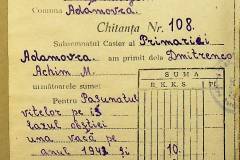 Comuna Adamovca.
Chitanța Nr. 108.
Subsemnatul Casier al Primariei
Adamovca. am primit dela Dmitrenco
Achim M.
următoarele sume:
Pentru Pasunatul
vitelor pe
lazul obștiei
una vacă pe
anul 1942 și
SUMA
R. K. K. S. PF.
10.